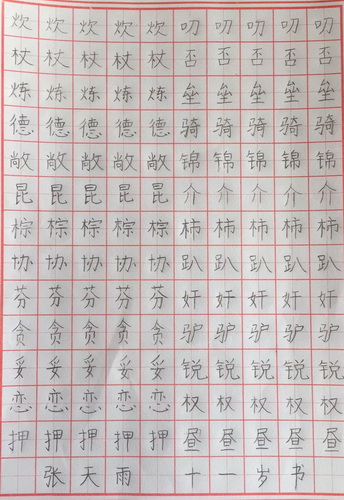 炊炊炊炊炊叨叨叨叨叨
杖杖杖杖杖否否否否否
炼炼炼炼炼垒垒垒垒垒
德德德德德骑骑骑骑骑
敞敞敞敞敞锦锦锦锦锦
昆昆昆昆昆介介介介介
棕棕棕棕棕柿柿柿柿柿
协协协协协趴趴趴趴趴
芬芬芬芬芬奸奸奸奸奸
贪贪贪贪贪驴驴驴驴驴
妥妥妥妥妥锐锐锐锐锐
恋恋恋恋恋权权权权权
押押押押押昼昼昼昼昼
张天雨十一岁书